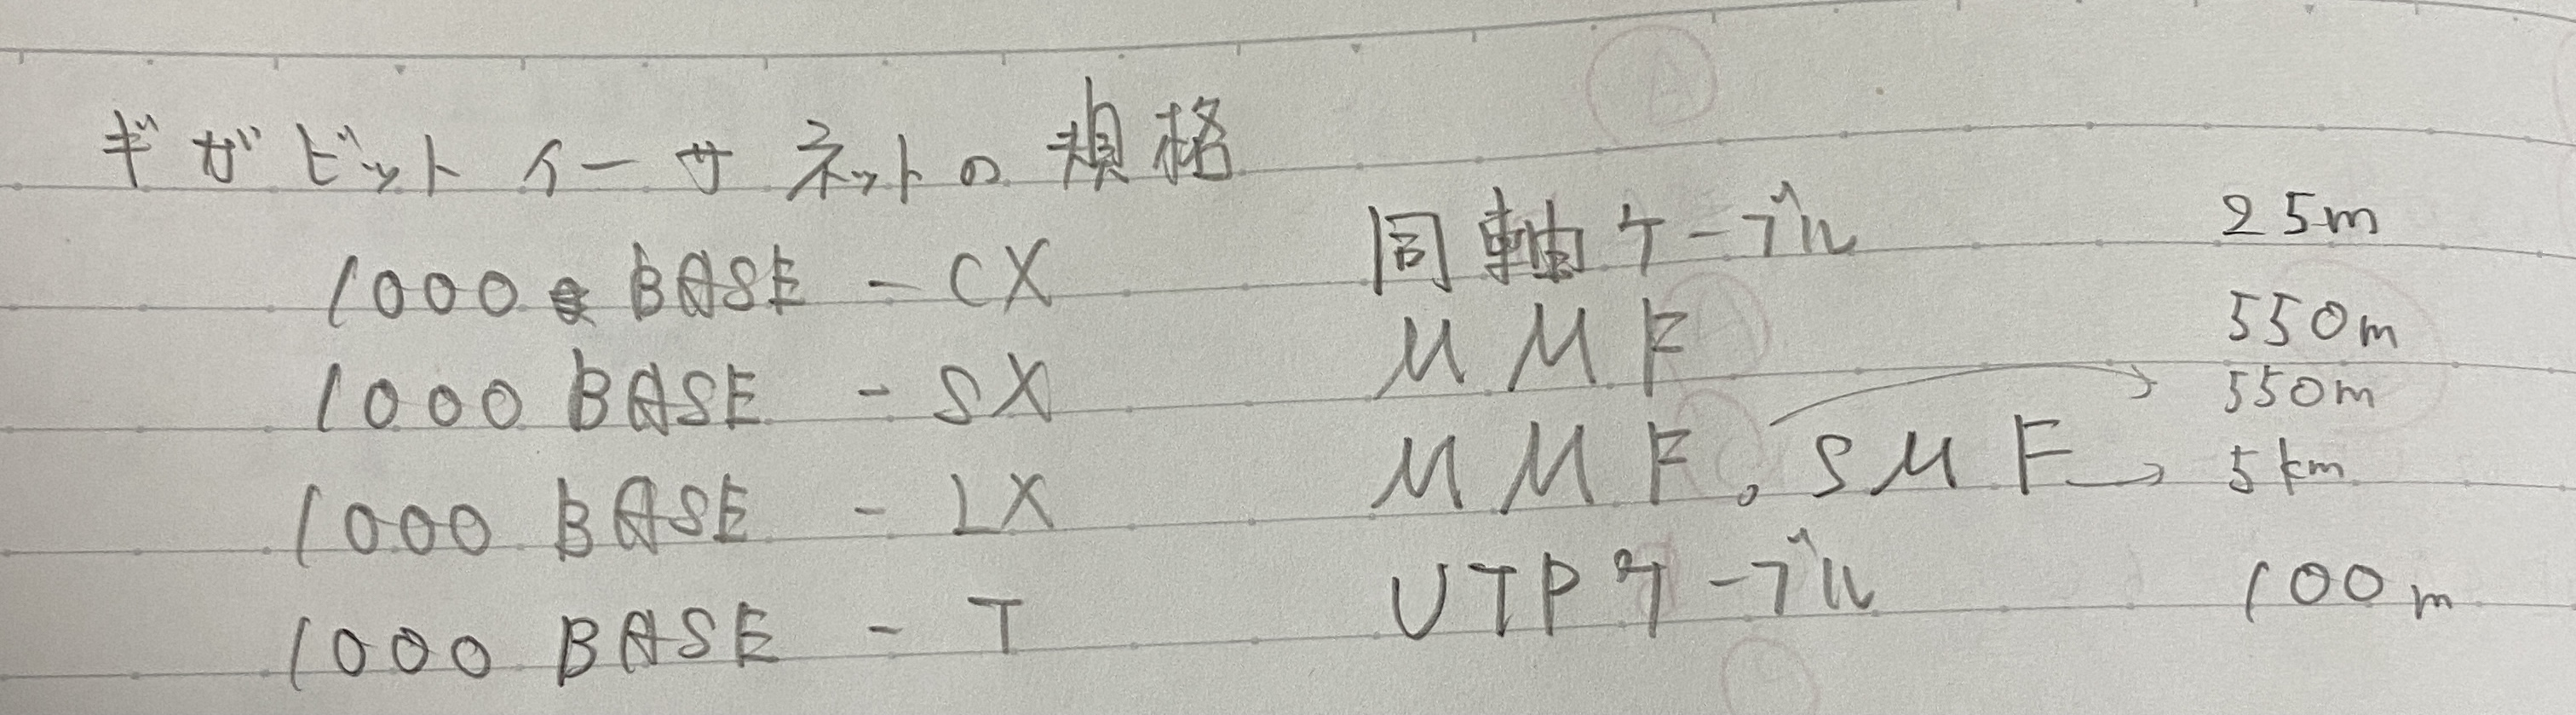 ギガビットイーサネットの規格
1000 BASE - CX 同軸ケーブル 25m
1000 BASE - SX MMF 550m
1000 BASE - LX MMF, SMF 550m 5km
1000 BASE - T UTPケーブル 100m